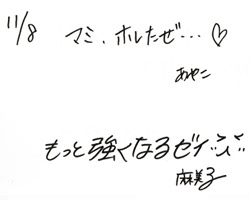 11/8 マミ、ホレたぜ…♡
あやこ
もっと強くなるゼイ
麻美子